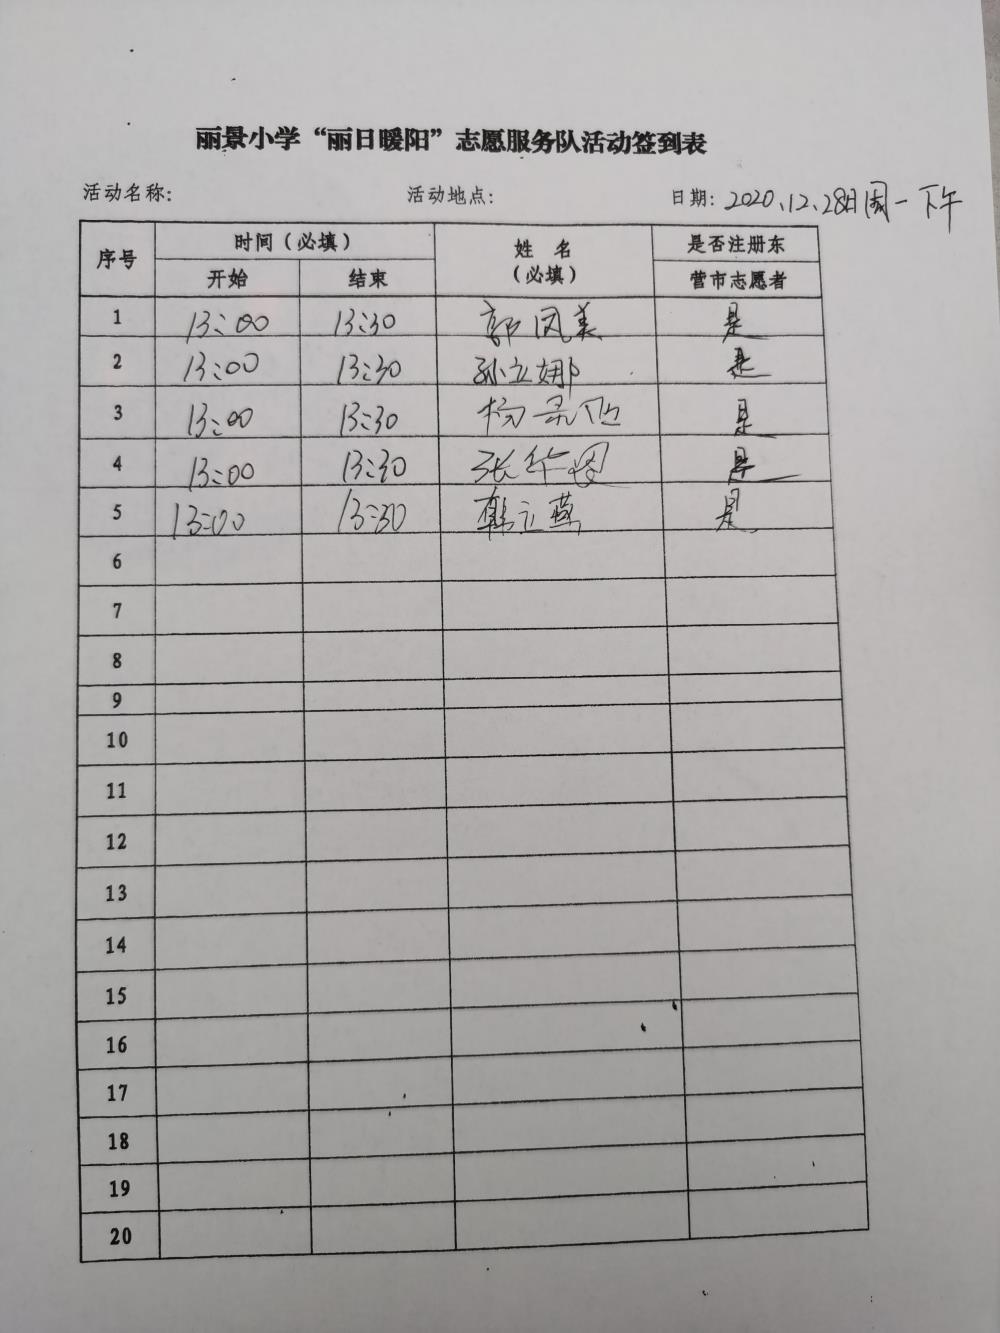 丽景小学“丽日暖阳”志愿服务队活动签到表
活动名称: 活动地点: 日期: 2020.12.28日周一下午
序号 时间(必填) 姓 名 (必填) 是否注册东营市志愿者
开始 结束
1 13:00 13:30 郭凤美 是
2 13:00 13:30 孙立娜 是
3 13:00 13:30 杨 是
4 13:00 13:30 张华 是
5 13:00 13:30 韩立燕 是
6
7
8
9
10
11
12
13
14
15
16
17
18
19
20